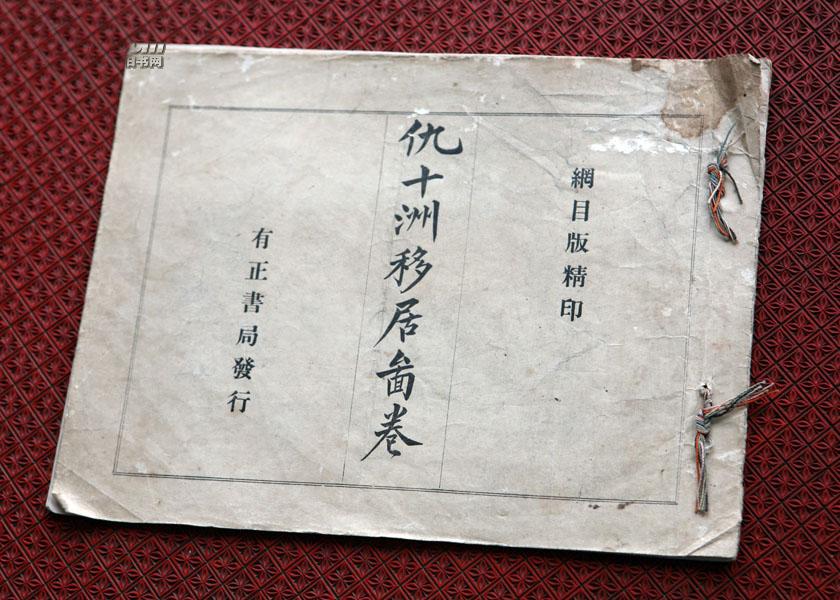 網目版精印
仇十洲移居啚卷
有正書局發行
旧书网